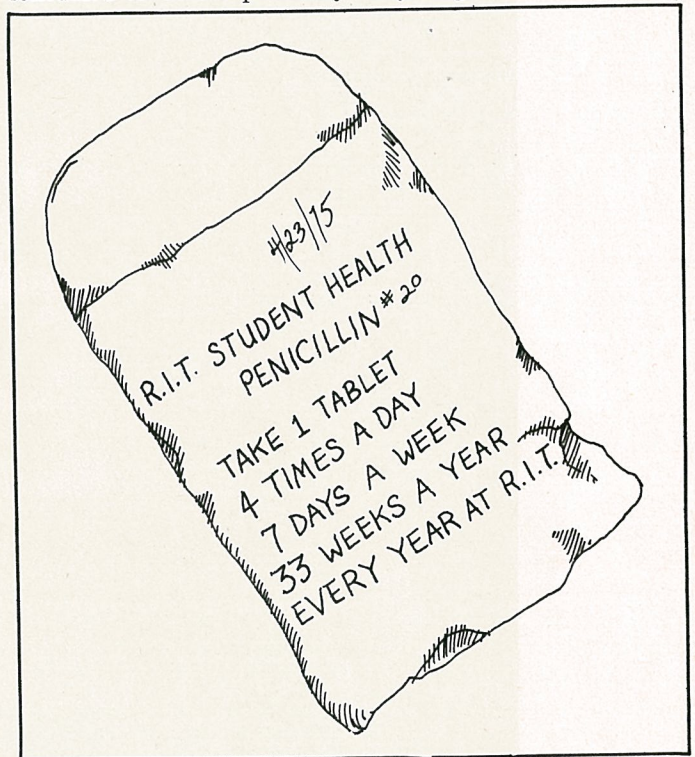 4/23/75
R.I.T. STUDENT HEALTH
PENICILLIN #20
TAKE 1 TABLET
4 TIMES A DAY
7 DAYS A WEEK
33 WEEKS A YEAR
EVERY YEAR AT R.I.T.